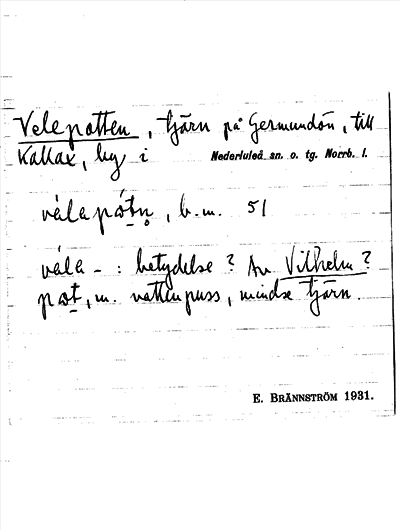 Velepotten, tjärn på Germundön, till
Kallax, by i Nederluleå sn. o. tg. Norrb. l.
vá̊lapótn̥, b.m. 51
vá̊la- : betydelse? Av Vilhelm?
pot, m. vattenpuss, mindre tjärn.
E. BRÄNNSTRÖM 1931.